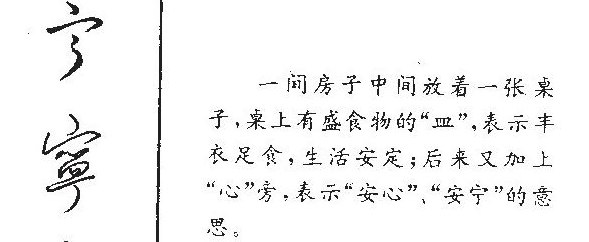 宁
寧
一间房子中间放着一张桌
子，桌上有盛食物的“皿”，表示丰
衣足食，生活安定；后来又加上
“心”旁，表示“安心”、“安宁”的意
思。